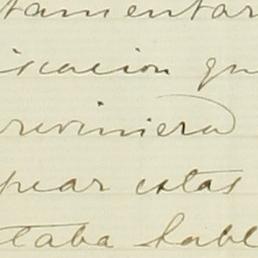 tamentar
iscacion qu
reviniera
pear estas
taba habl